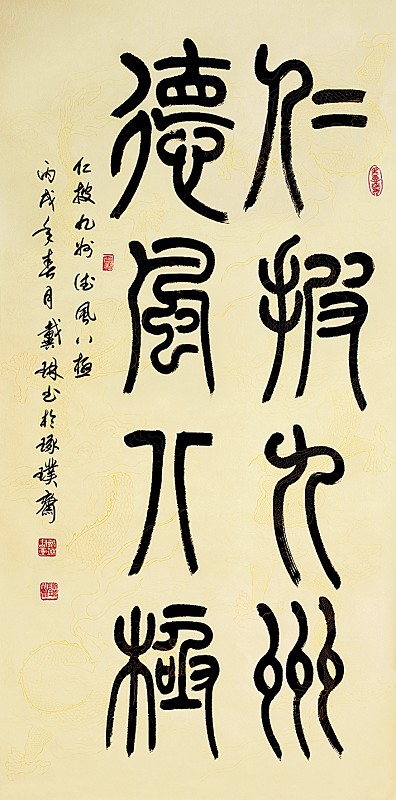 仁披九州
德風八極
仁披九州德風八極
丙戌年春月戴琳書於琢璞齋